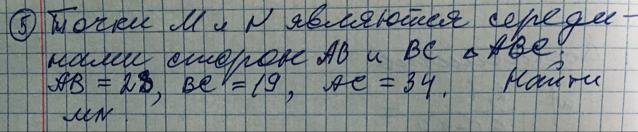 ⑤ Точки M и N являются середи-
нами сторон AB и BC △ ABC.
AB = 28, BC = 19, AC = 34. Найти
MN.